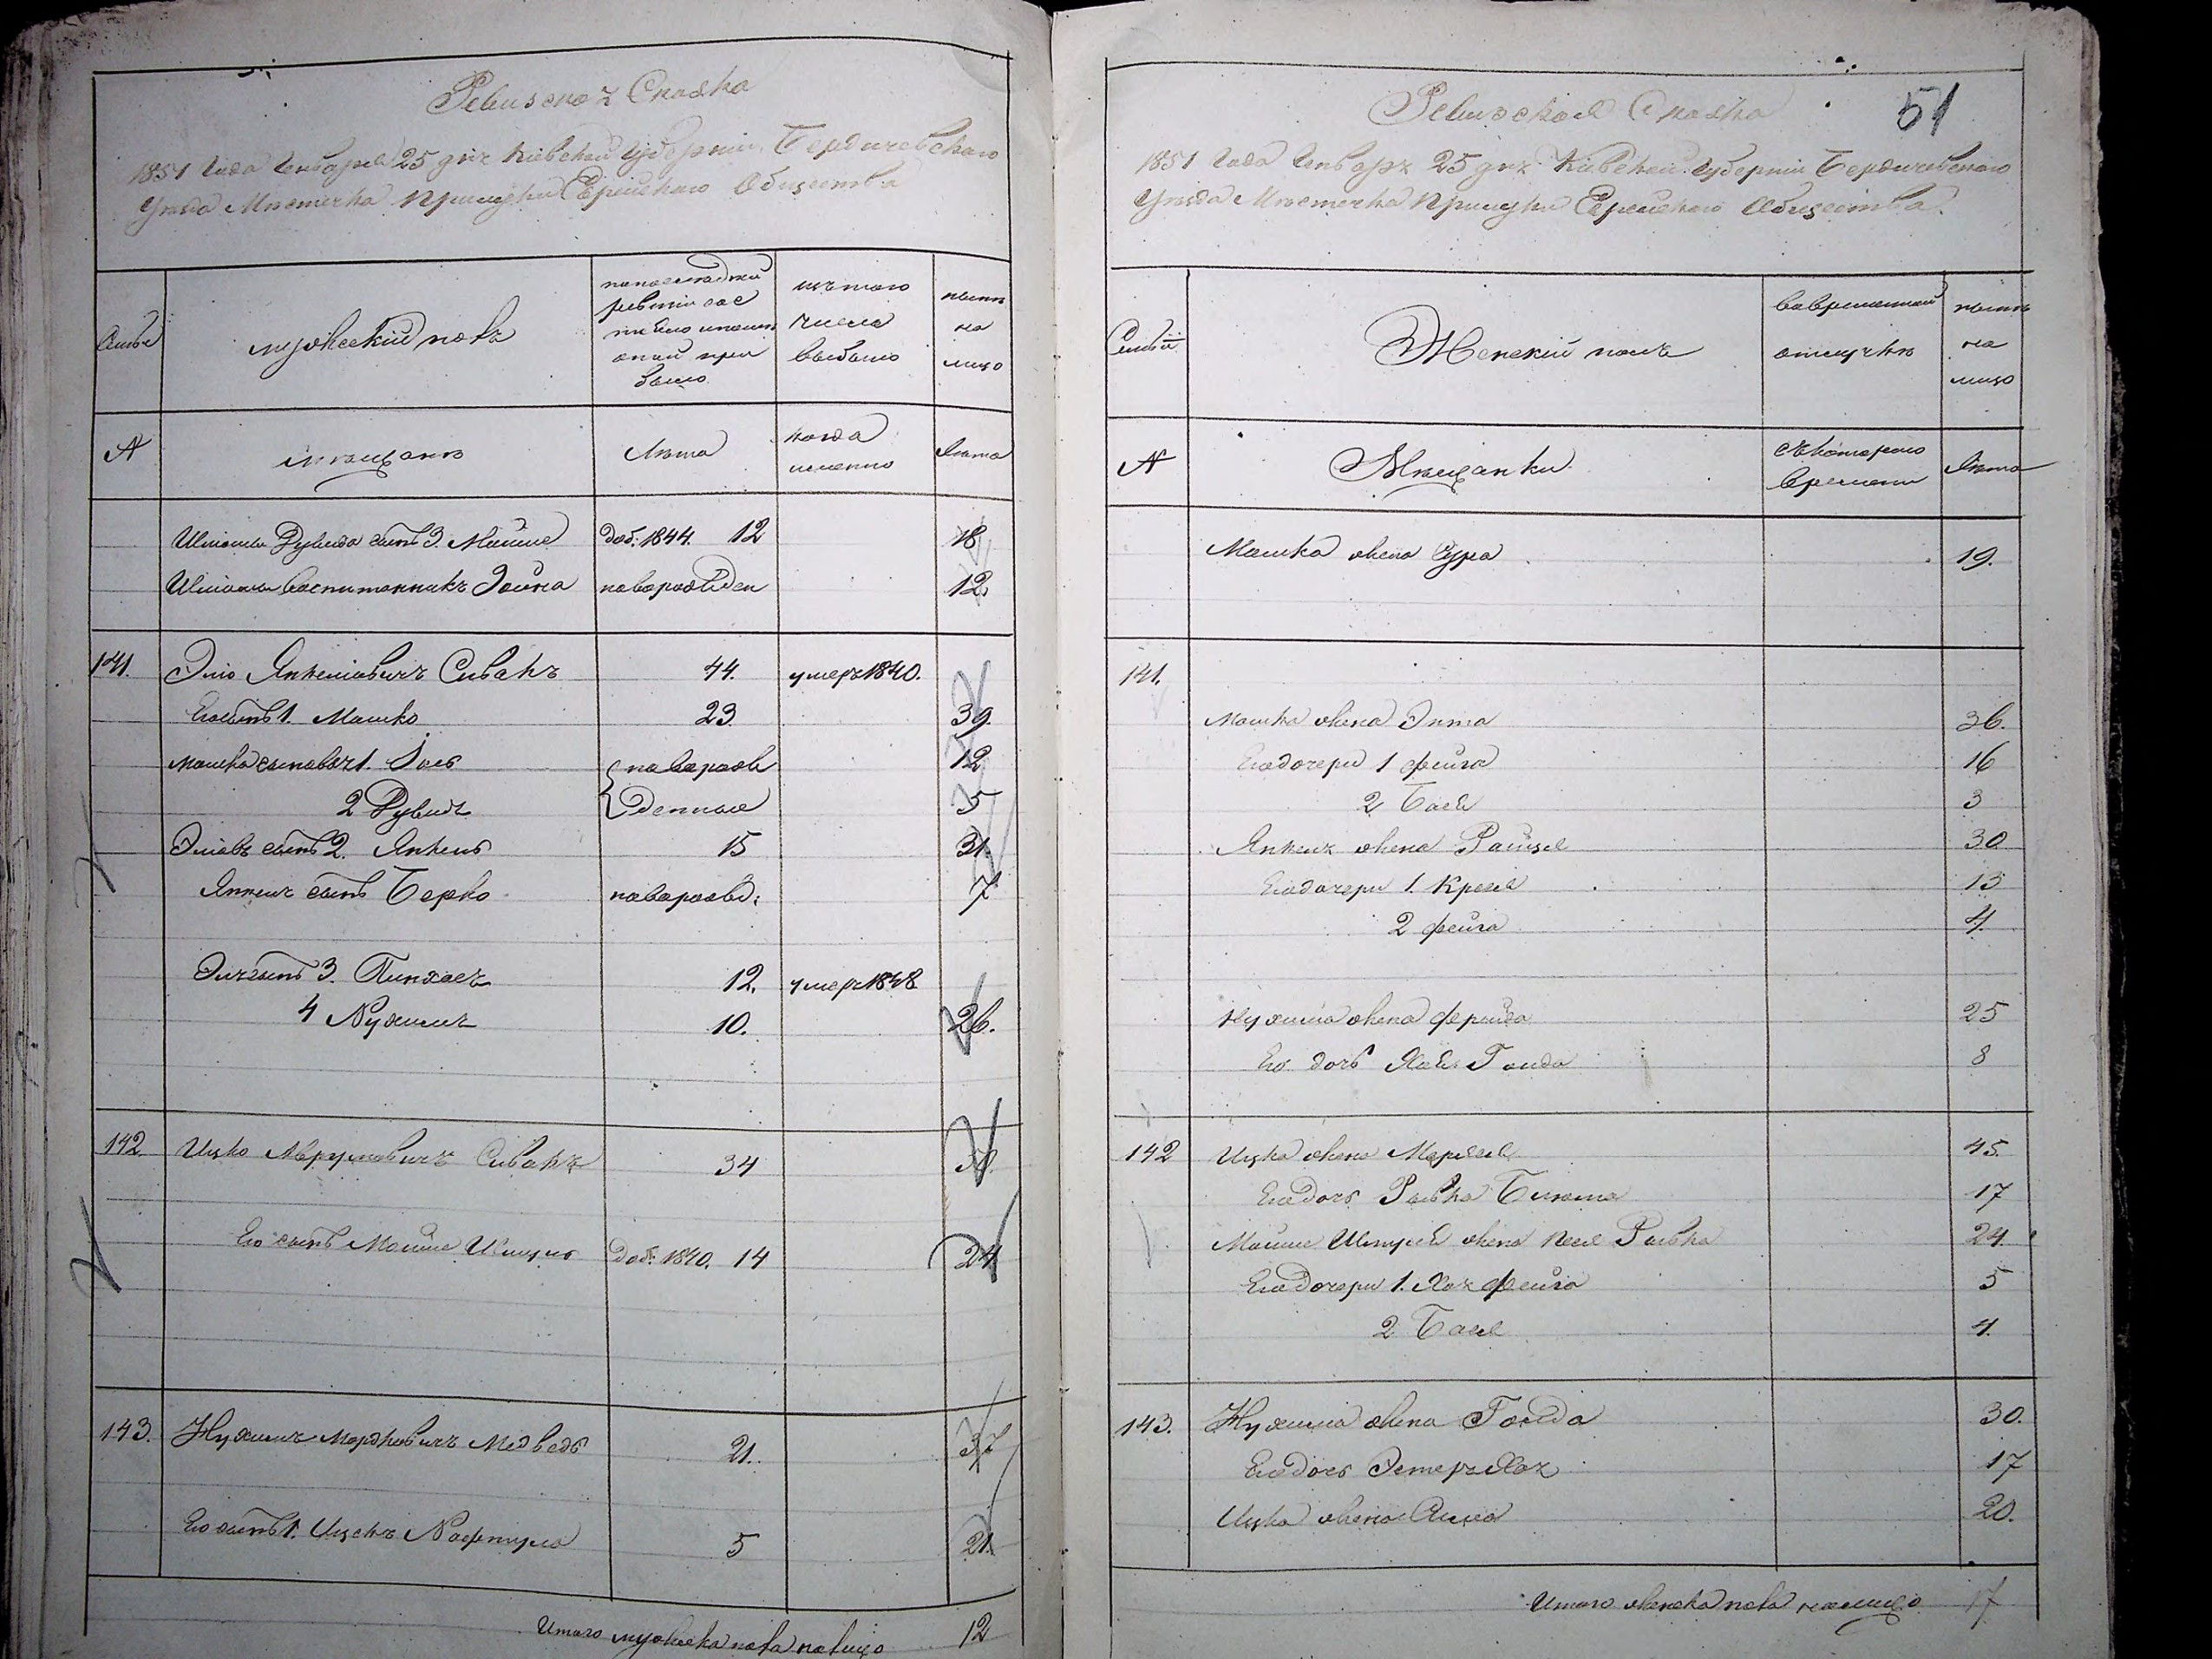 Ревизская Сказка
1851 Года Генваря 25 дня Кіевской Губерніи Бердичевскаго
Уѣзда Мѣстечка Прилуки Еврейскаго Общества
Семьи
мужескій полъ
по последней
ревизіи сос
тояло и после
оной при
было
изъ того
числа
выбыло
нынѣ
на
лицо
№
мѣщане
Лѣта
когда
именно
Лѣта
Шмоиля Рувина сынъ 3. Мойше доб: 1844. 12 18
Шмоиля воспитанникъ новорожден 12.
141. Эліо Янкеліовичъ Сивакъ 44. умеръ 1840.
Его сынъ 1. Мошко 23 39.
Мошка сыновья 1. Іось новорож 12
2 Рувинъ денные 5
Эліовъ сынъ 2. Янкель 15 31.
Янкеля сынъ Берко новорожд: 7
Эліи сынъ 3. Пинхасъ 12. умеръ 1848
4 Нухимъ 10. 26.
142. Ицко Аврумовичъ Сивакъ 34
Его сынъ Мойше Шмуль доб: 1840. 14 24
143. Нухимъ Мордковичъ Медведь 21. 37
Его сынъ 1. Ицекъ Нафтула 5 21.
Итого мужеска пола налицо 12
51
Ревизская Сказка
1851 Года Генваря 25 дня Кіевской Губерніи Бердичевскаго
Уѣзда Мѣстечка Прилуки Еврейскаго Общества.
Семьи
Женскій полъ
во временной
отлучкѣ
нынѣ
на
лицо
№
Мѣщанки
съ котораго
времени
Лѣта
Мошка жена Сура 19.
141.
Мошка жена Энта 36.
Его дочери 1 Фейга 16
2 Бася 3
Янкеля жена Райзя 30
Его дочери 1. Крейя 13
2 Фейга 4.
Нухима жена Фрейда 25
Его дочь Хая Голда 8
142 Ицка жена Марьяся 45.
Его дочь Ривка Билюма 17
Мойше Шмуля жена Песя Ривка 24.
Его дочери 1. Хая Фейга 5
2 Бася 4.
143. Нухима жена Голда 30.
Его дочь Эстеръ Хая 17
Ицка жена 20.
Итого женска пола налицо 17